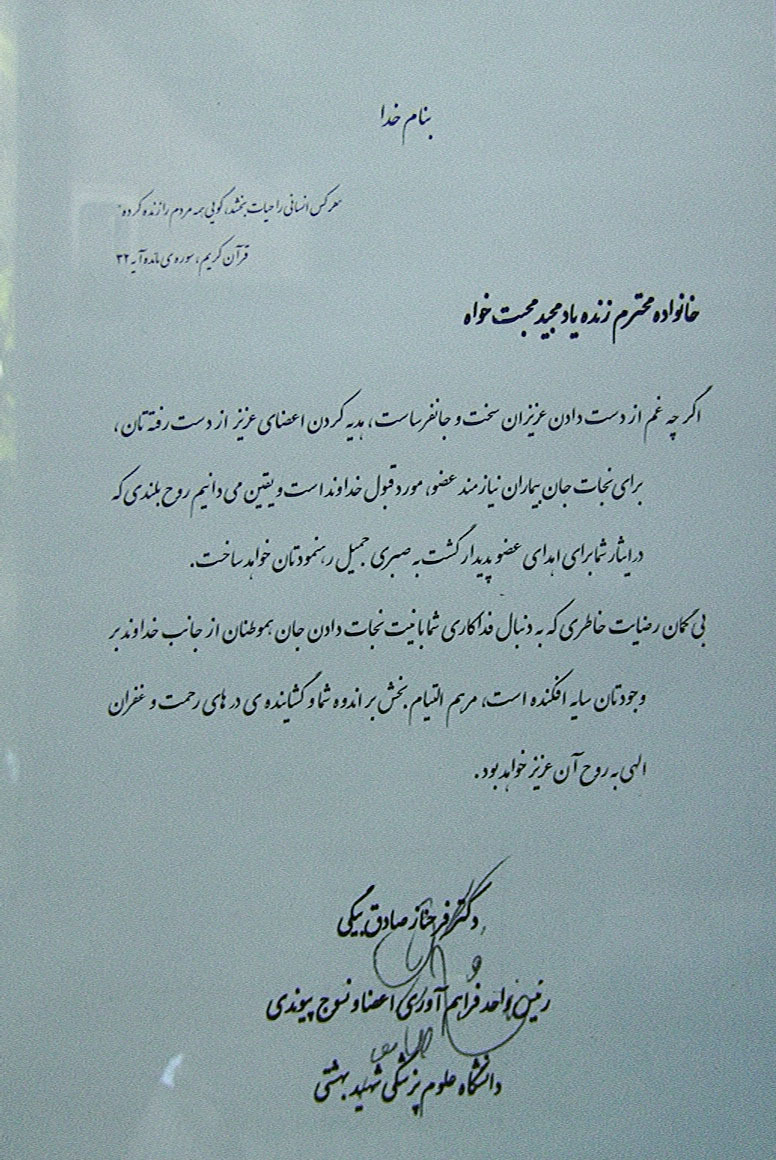 بنام خدا
هرکس انسانی را حیات بخشد، گویی همه مردم را زنده کرده
قرآن کریم، سوره ی مائده آیه ۳۲
خانواده محترم زنده یاد مجید محبت خواه
اگر چه غم از دست دادن عزیزان سخت و جانفرساست، هدیه کردن اعضای عزیز از دست رفته تان،
برای نجات جان بیماران نیازمند عضو، مورد قبول خداوند است و یقین می دانیم روح بلندی که
در ایثار شما برای اهدای عضو پدیدار گشت به صبری جمیل رهنمودتان خواهد ساخت.
بی گمان رضایت خاطری که به دنبال فداکاری شما با نیت نجات دادن جان هموطنان از جانب خداوند بر
وجودتان سایه افکنده است، مرهم التیام بخش بر اندوه شما و گشاینده ی در های رحمت و غفران
الهی به روح آن عزیز خواهد بود.
دکتر فرحناز صادق بیگی
رئیس واحد فراهم آوری اعضا و نسوج پیوندی
دانشگاه علوم پزشکی شهید بهشتی